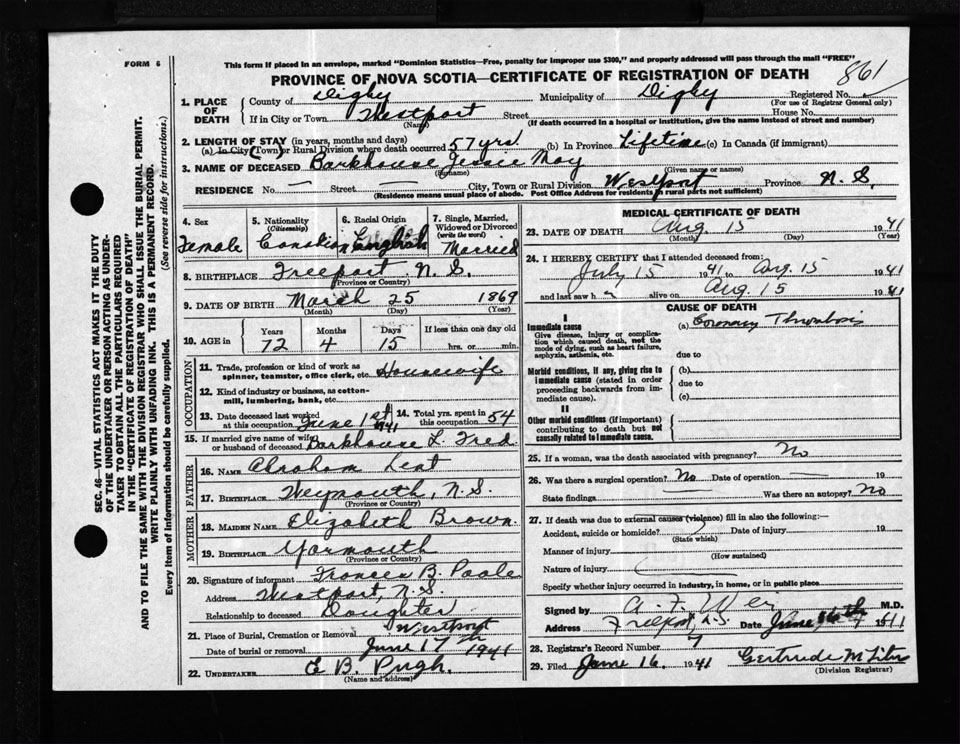 FORM 6
This form if placed in an envelope, marked "Dominion Statistics—Free, penalty for improper use $300," and properly addressed will pass through the mail "FREE"
PROVINCE OF NOVA SCOTIA—CERTIFICATE OF REGISTRATION OF DEATH
861
1. PLACE OF DEATH
County of Digby Municipality of Digby Registered No.
(For use of Registrar General only)
If in City or Town Westport Street House No.
(Name) (If death occurred in a hospital or institution, give the name instead of street and number)
2. LENGTH OF STAY (in years, months and days)
(a) In City (Town) or Rural Division where death occurred 57 yrs. (b) In Province Lifetime (c) In Canada (if immigrant)
3. NAME OF DECEASED Barkhouse Jessie May
(Surname) (Given name or names)
RESIDENCE No. — Street — City, Town or Rural Division Westport Province N.S.
(Residence means usual place of abode. Post Office Address for residents in rural parts not sufficient)
4. Sex Female
5. Nationality (Citizenship) Canadian
6. Racial Origin English
7. Single, Married, Widowed or Divorced (write the word) Married
8. BIRTHPLACE Freeport N.S.
(Province or Country)
9. DATE OF BIRTH March 25 1869
(Month) (Day) (Year)
10. AGE in Years Months Days If less than one day old
72 4 15 hrs. or min.
OCCUPATION
11. Trade, profession or kind of work as spinner, teamster, office clerk, etc. Housewife
12. Kind of industry or business, as cotton-mill, lumbering, bank, etc.
13. Date deceased last worked at this occupation June 1st 1941
14. Total yrs. spent in this occupation 54
15. If married give name of wife or husband of deceased Barkhouse L. Fred
FATHER
16. NAME Abraham Lent
17. BIRTHPLACE Weymouth, N.S.
(Province or Country)
MOTHER
18. MAIDEN NAME Elizabeth Brown.
19. BIRTHPLACE Yarmouth
(Province or Country)
20. Signature of informant Frances B. Poole
Address Westport, N.S.
Relationship to deceased Daughter
21. Place of Burial, Cremation or Removal Westport
Date of burial or removal June 17th 1941
22. UNDERTAKER E B. Pugh.
(Name and address)
MEDICAL CERTIFICATE OF DEATH
23. DATE OF DEATH Aug 15 1941
(Month) (Day) (Year)
24. I HEREBY CERTIFY that I attended deceased from:
July 15 1941 to Aug. 15 1941
and last saw h alive on Aug 15 1941
CAUSE OF DEATH
I
Immediate cause
Give disease, injury or complication which caused death, not the mode of dying, such as heart failure, asphyxia, asthenia, etc.
(a) Coronary Thrombosis
due to
Morbid conditions, if any, giving rise to immediate cause (stated in order proceeding backwards from immediate cause).
(b)
due to
(c)
II
Other morbid conditions (if important) contributing to death but not causally related to immediate cause.
25. If a woman, was the death associated with pregnancy? No
26. Was there a surgical operation? No Date of operation 19
State findings Was there an autopsy? No
27. If death was due to external causes (violence) fill in also the following:—
Accident, suicide or homicide? Date of injury 19
(State which)
Manner of injury
(How sustained)
Nature of injury
Specify whether injury occurred in industry, in home, or in public place
Signed by A. F. Weir M.D.
Address Freeport, N.S. Date June 16th
28. Registrar's Record Number 7
29. Filed June 16. 1941 Gertrude M
(Division Registrar)
SEC. 46—VITAL STATISTICS ACT MAKES IT THE DUTY
OF THE UNDERTAKER OR PERSON ACTING AS UNDER-
TAKER TO OBTAIN ALL THE PARTICULARS REQUIRED
IN THE "CERTIFICATE OF REGISTRATION OF DEATH"
AND TO FILE THE SAME WITH THE DIVISION REGISTRAR WHO SHALL ISSUE THE BURIAL PERMIT.
WRITE PLAINLY WITH UNFADING INK. THIS IS A PERMANENT RECORD.
Every item of information should be carefully supplied. (See reverse side for instructions.)